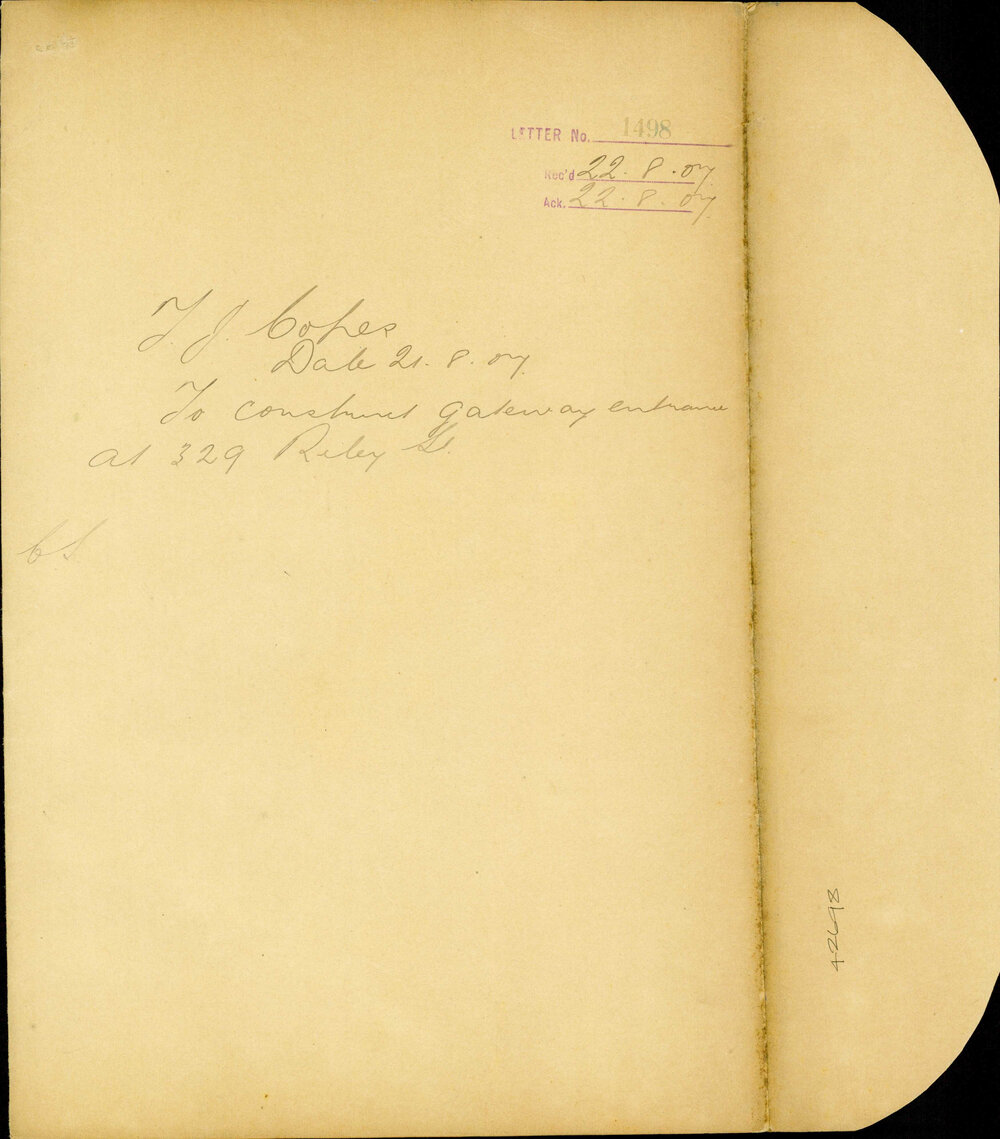 LETTER No. 1498
Rec'd 22.8.07
Ack. 22.8.07
T. J. Copes
Date 21.8.07
To construct gateway entrance
at 329 Riley St.
CS
42698